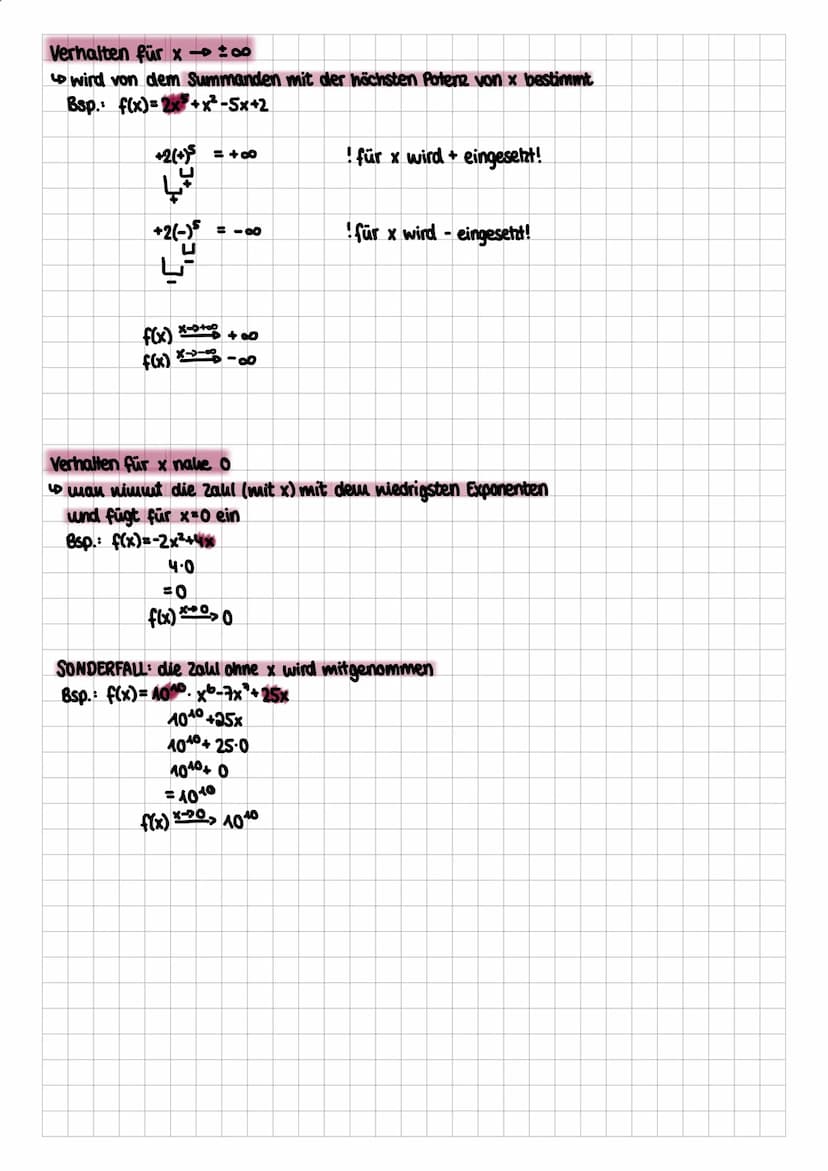 Verhalten für x → ±∞
↳ wird von dem Summanden mit der höchsten Potenz von x bestimmt
Bsp.: f(x)= 2x⁵+x²-5x+2
+2(+)⁵ = +∞ ! für x wird + eingesetzt!
+
+
+2(-)⁵ = -∞ ! für x wird - eingesetzt!
-
-
f(x) x→+∞ +∞
f(x) x→-∞ -∞
Verhalten für x nahe 0
↳ man nimmt die Zahl (mit x) mit dem niedrigsten Exponenten
und fügt für x=0 ein
Bsp.: f(x)=-2x²+4x
4·0
=0
f(x) x→0> 0
SONDERFALL: die Zahl ohne x wird mitgenommen
Bsp.: f(x)= 10¹⁰· x⁶-7x⁷+25x
10¹⁰+25x
10¹⁰+ 25·0
10¹⁰+ 0
= 10¹⁰
f(x) x→0> 10¹⁰